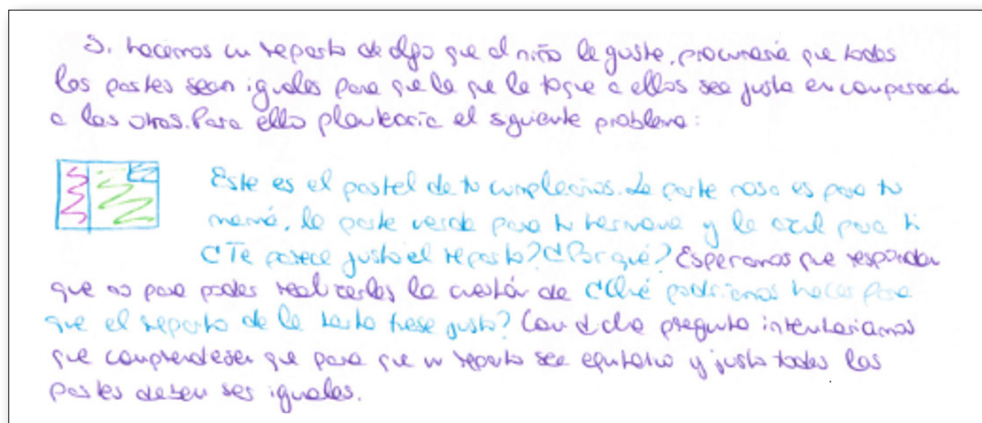 Si hacemos un reparto de algo que al niño le guste, procuraría que todas
las partes sean iguales para que la que le toque a ellos sea justa en comparación
a las otras. Para ello plantearía el siguiente problema:
Este es el pastel de tu cumpleaños. La parte rosa es para tu
mamá, la parte verde para tu hermana y la azul para ti
¿Te parece justo el reparto? ¿Por qué? Esperamos que respondan
que no para poder realizarles la cuestión de ¿Qué podríamos hacer para
que el reparto de la tarta fuese justo? Con dicha pregunta intentaríamos
que comprendiesen que para que un reparto sea equitativo y justo todas las
partes deben ser iguales.